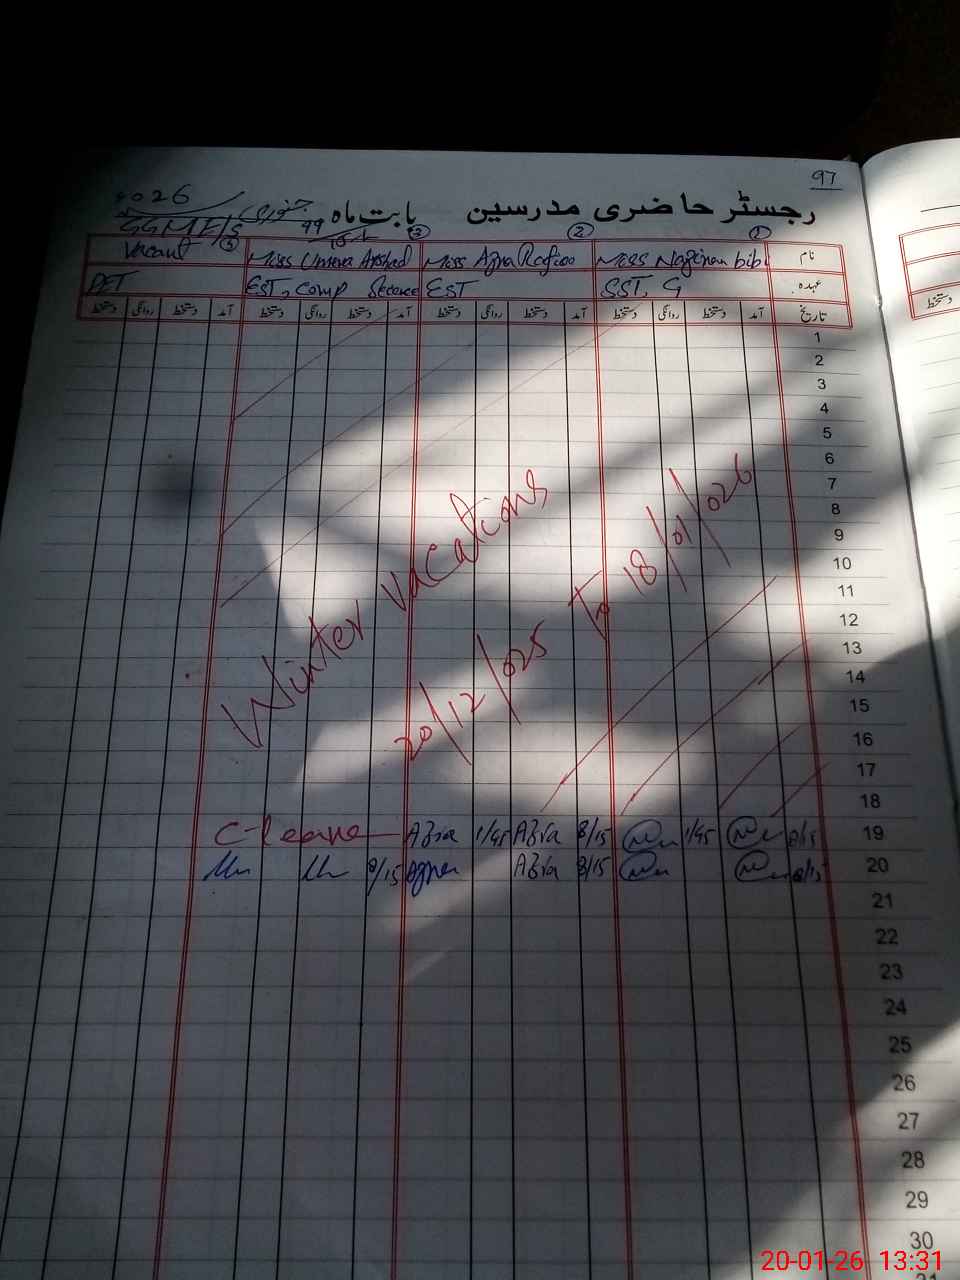 97
رجسٹر حاضری مدرسین بابت ماہ جنوری 2026
GGMES
① ② ③
نام Miss Nazeman bibi Miss Azra Rafiq Miss Arshad Vacant
عہدہ SST, G EST EST, Comp Science PET
تاریخ آمد دستخط روانگی دستخط آمد دستخط روانگی دستخط آمد دستخط روانگی دستخط آمد دستخط روانگی دستخط
1
2
3
4
5
6
7
8
9
10
11
12
13
14
15
16
17
18
Winter vacations
20/12/025 To 18/01/026
C-leave Azra 1/45 Azra 8/15 1/45 8/15 19
8/15 Azra Azra 8/15 8/15 20
21
22
23
24
25
26
27
28
29
30
20-01-26 13:31